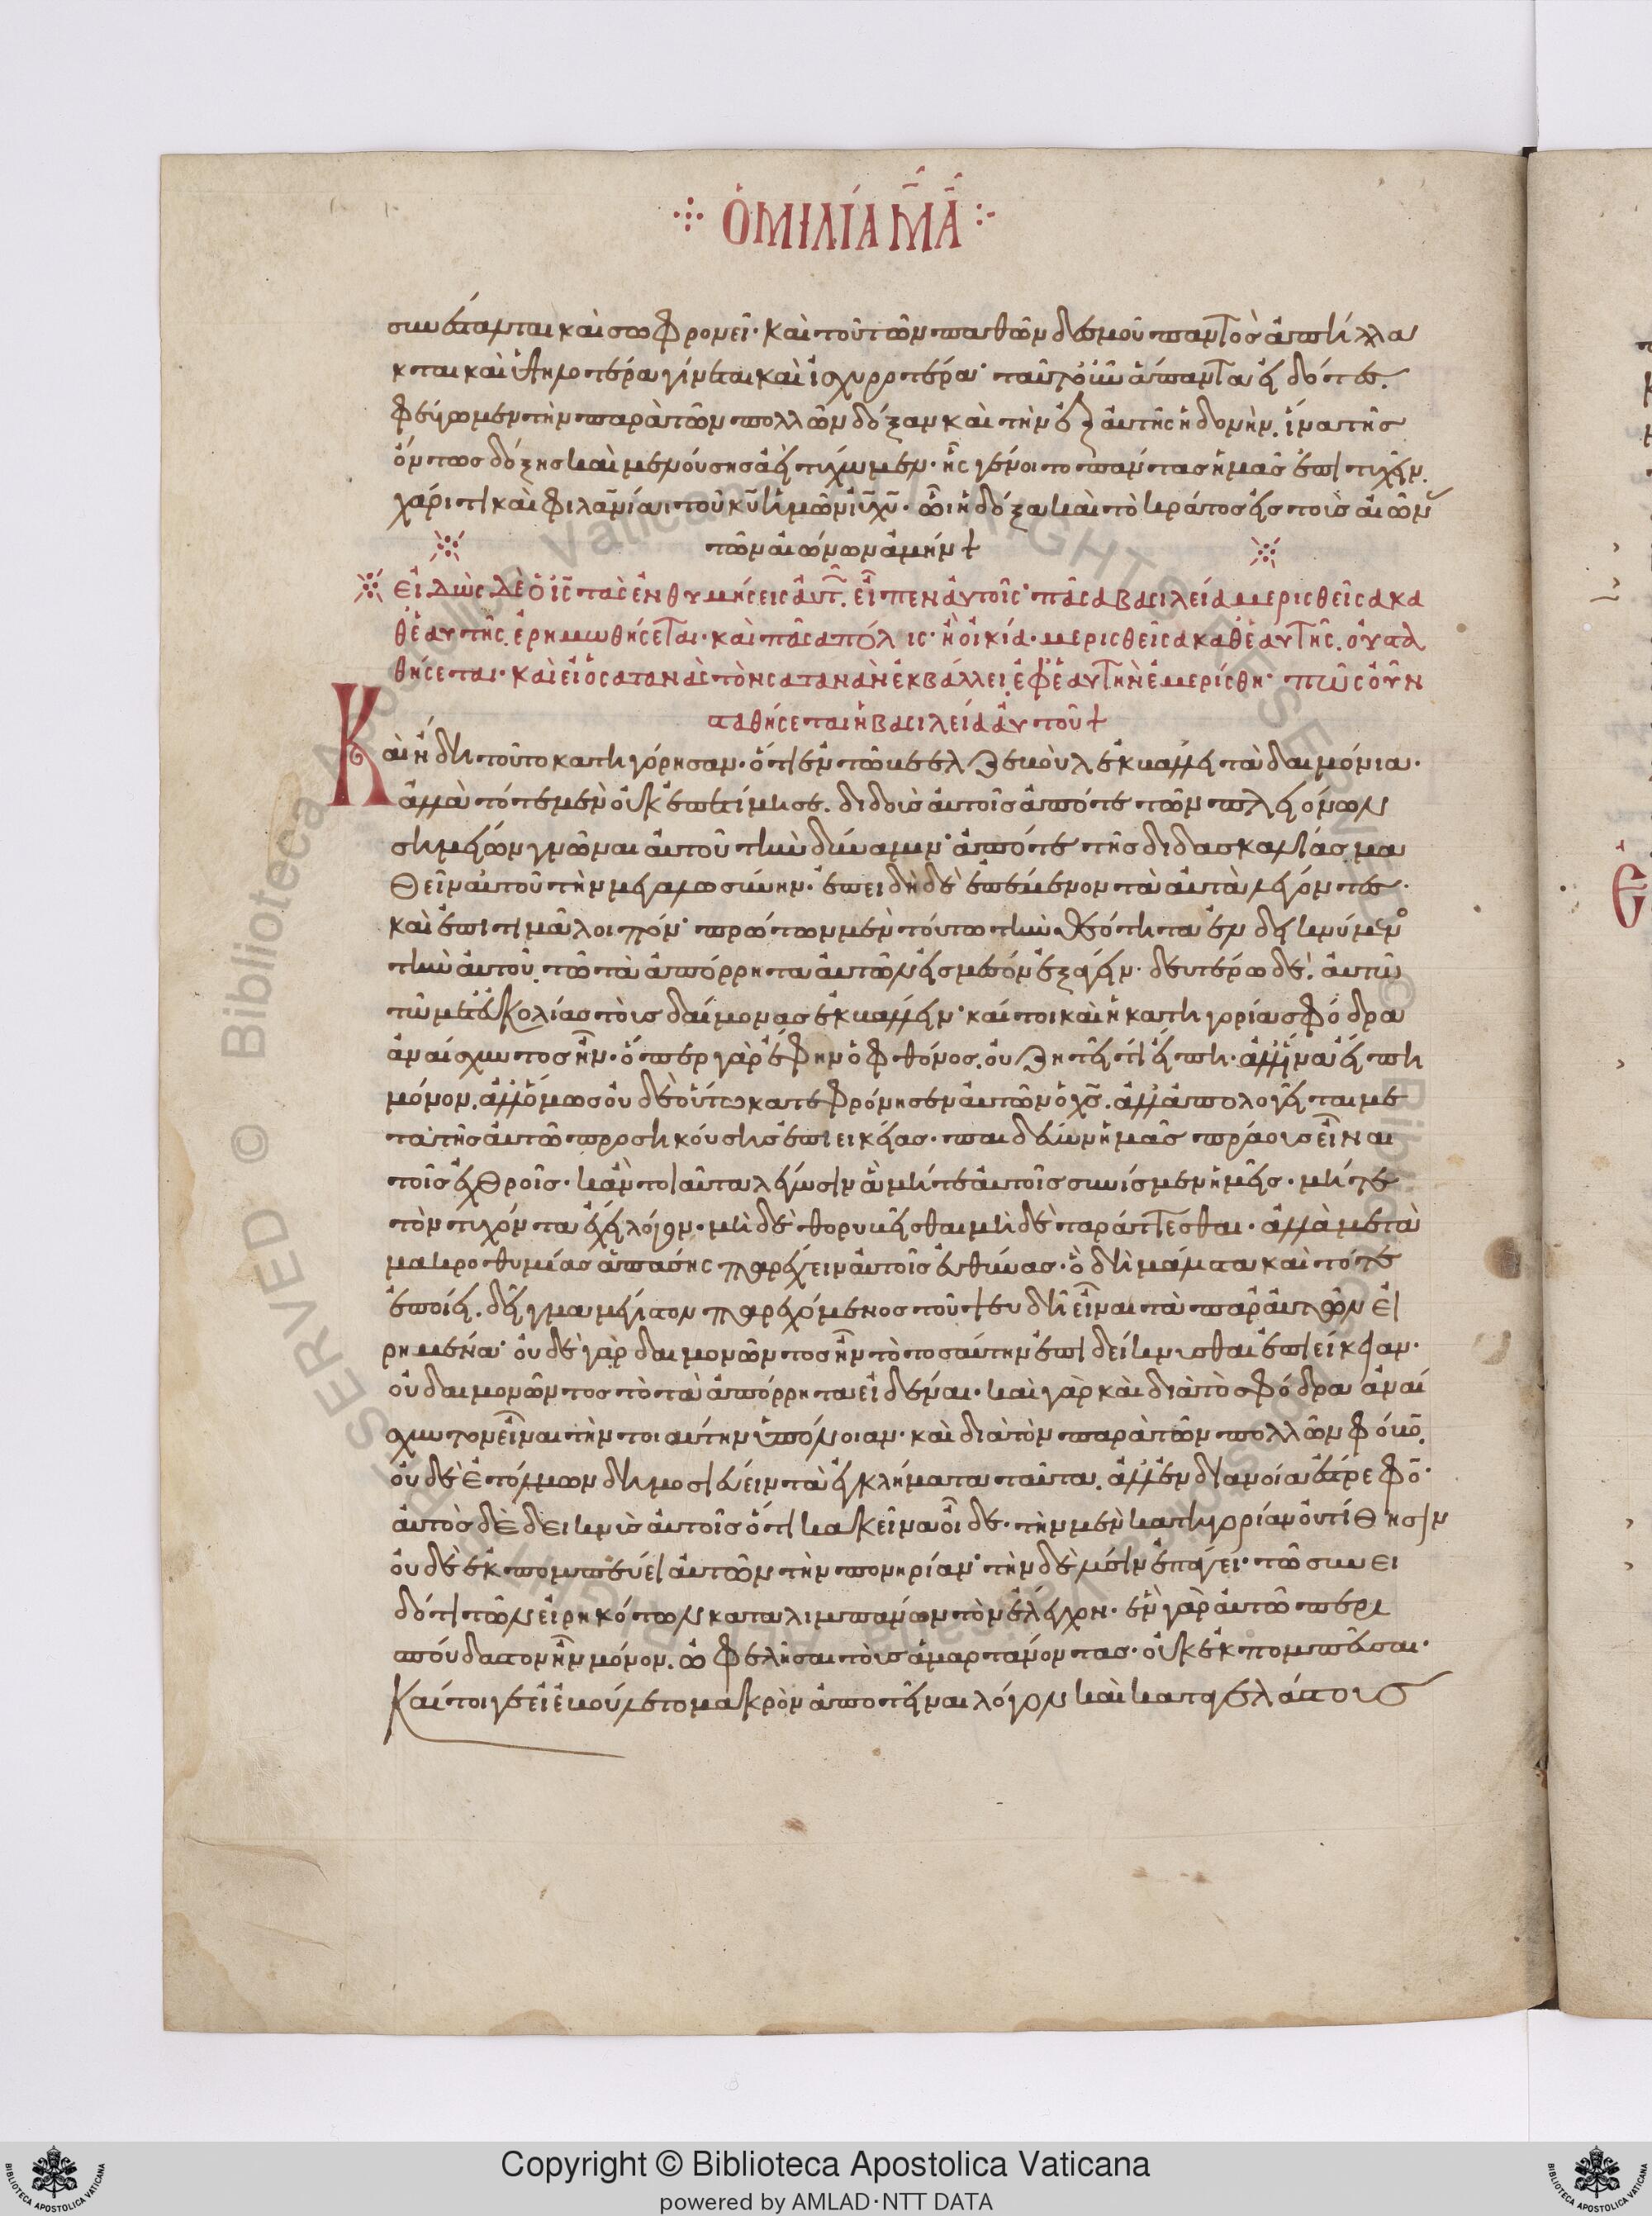 ὉΜΙΛΊΑ ΜᾹ
συνίσταται καὶ σωφρονεῖ· καὶ τοῦ τῶν παθῶν δεσμοῦ παντὸς ἀπήλλα
κται καὶ εὐτονωτέρα γίνεται καὶ ἰσχυροτέρα· ταῦτ' οὖν ἅπαντα εἰδότες.
φεύγωμεν τὴν παρὰ τῶν πολλῶν δόξαν καὶ τὴν ἐξ αὐτῆς ἡδονήν. ἵνα τῆς
ὄντως δόξης καὶ μενούσης ἀεὶ τύχωμεν· ἧς γένοιτο πάντας ἡμᾶς ἐπιτυχεῖν.
χάριτι καὶ φιλανίαι τοῦ κυ ἡμῶν ιυ χυ· ὧι ἡ δόξα καὶ τὸ κράτος εἰς τοὺς αἰῶν
τῶν αἰώνων ἀμήν
εἰδὼς δὲ ὁ ις τὰς ἐνθυμήσεις αὐτ. εἶπεν αὐτοῖς· πᾶσα βασιλεία μερισθεῖσα κα
θ' ἑαυτῆς. ἐρημωθήσεται· καὶ πᾶσα πόλις· ἢ οἰκία· μερισθεῖσα καθ' ἑαυτῆς. οὐ στα
θήσεται· καὶ εἰ ὁ σατανᾶς τὸν σατανᾶν ἐκβάλλει. ἐφ' ἑαυτὴν ἐμερίσθη· πῶς οὖν
σταθήσεται ἡ βασιλεία αὐτοῦ
Καὶ ἤδη τοῦτο κατηγόρησαν· ὅτι ἐν τῶ βεελζεβοὺλ ἐκβάλλει τὰ δαιμόνια·
ἀλλὰ τότε μὲν οὐκ ἐπετίμησε. διδοὺς αὐτοῖς ἀπό τε τῶν πλειόνων
σημείων γνῶναι αὐτοῦ τὴν δύναμιν· ἀπό τε τῆς διδασκαλίας μα
θεῖν αὐτοῦ τὴν μεγαλωσύνην· ἐπειδὴ δὲ ἐπέμενον τὰ αὐτὰ λέγοντες·
καὶ ἐπιτιμᾶ λοιπόν· πρώτωι μὲν τούτω τὴν θεότητα ἐνδεικνύμενο
τὴν αὐτοῦ. τῶ τὰ ἀπόρρητα αὐτῶν εἰς μέσον ἐξάγειν· δευτέρω δὲ. αὐτῶ
τῶ μετ' εὐκολίας τοὺς δαίμονας ἐκβάλλειν· καίτοι καὶ ἡ κατηγορία σφόδρα
ἀναίσχυντος ἦν· ὅπερ γὰρ ἔφην ὁ φθόνος. οὐ ζητεῖ τί εἴπη· ἀλλ' ἵνα εἴπη
μόνον. ἀλλ' ὅμως οὐδὲ οὕτω κατεφρόνησεν αὐτῶν ὁ χς. ἀλλ' ἀπολογεῖται με
τὰ τῆς αὐτῶ προσηκούσης ἐπιεικείας· παιδεύων ἡμᾶς πράους εἶναι
τοῖς ἐχθροῖς· κἂν τοιαῦτα λέγωσιν ἃ μήτε αὐτοῖς συνίσμεν ἡμεῖς· μήτε
τὸν τυχόντα ἔχει λόγον· μὴ δὲ θορυβεῖσθαι μὴ δὲ ταράττεσθαι· ἀλλὰ μετὰ
μακροθυμίας ἁπάσης παρέχειν αὐτοῖς εὐθύνας· ὃ δὴ μάλιστα καὶ τότε
ἐποίει. δεῖγμα μέγιστον παρεχόμενος τοῦ ψευδῆ εἶναι τὰ παρ' αὐτῶν εἰ
ρημένα· οὐδὲ γὰρ δαιμονῶντος ἦν τὸ τοσαύτην ἐπιδείκνυσθαι ἐπιείκειαν·
οὐ δαιμονῶντος τὸ τὰ ἀπόρρητα εἰδέναι· καὶ γὰρ καὶ διὰ τὸ σφόδρα ἀναί
σχυντον εἶναι τὴν τοιαύτην ὑπόνοιαν· καὶ διὰ τὸν παρὰ τῶν πολλῶν φόβον.
οὐδὲ ἐτόλμων δημοσιεύειν τὰ ἐγκλήματα ταῦτα. ἀλλ' ἐν διανοία ἔστρεφον·
αὐτὸς δὲ δεικνὺς αὐτοῖς ὅτι κἀκεῖνα οἶδε· τὴν μὲν κατηγορίαν οὐ τίθησιν
οὐδὲ ἐκπομπεύει αὐτῶν τὴν πονηρίαν· τὴν δὲ λύσιν ἐπάγει· τῶ συνει
δότι τῶν εἰρηκότων καταλιμπάνων τὸν ἔλεγχον· ἓν γὰρ αὐτῶ περι
σπούδαστον ἦν μόνον. ὠφελῆσαι τοὺς ἁμαρτάνοντας· οὐκ ἐκπομπεῦσαι·
Καίτοιγε εἰ ἐβούλετο μακρὸν ἀποτεῖναι λόγον καὶ καταγελάστους
Copyright © Biblioteca Apostolica Vaticana
powered by AMLAD·NTT DATA